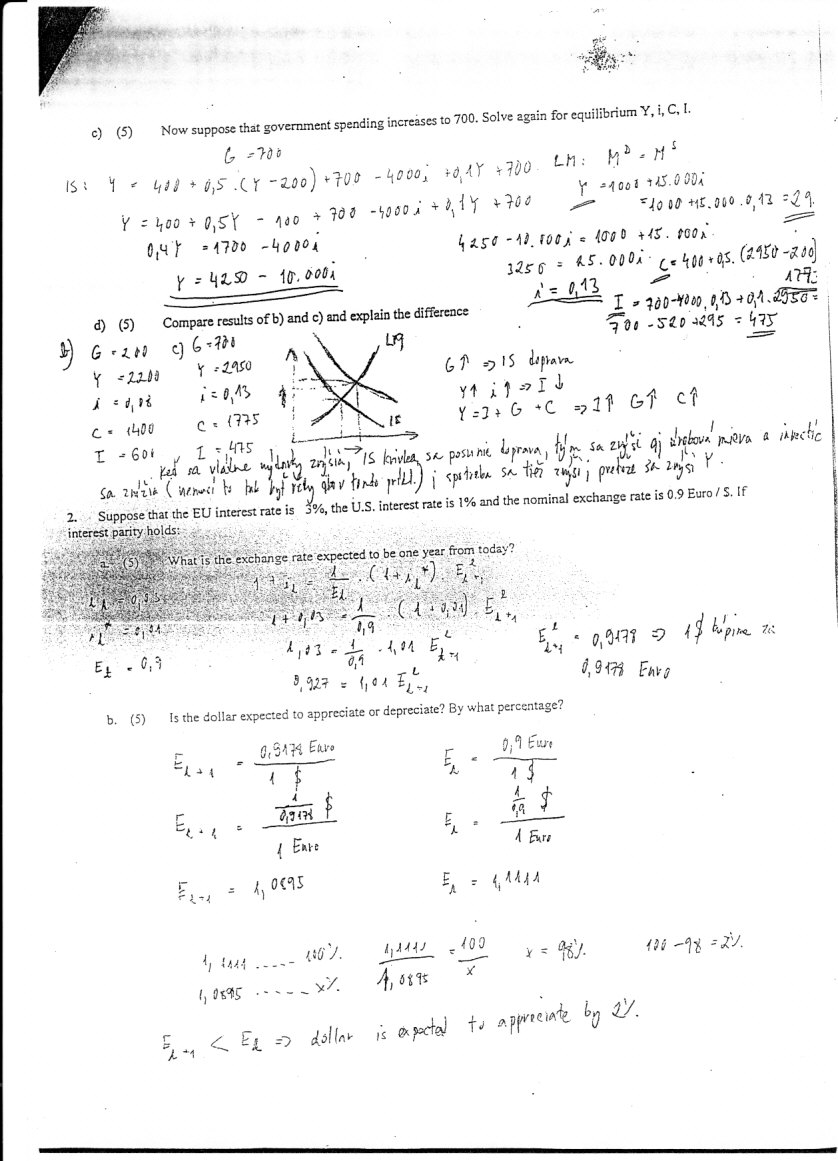 c) (5) Now suppose that government spending increases to 700. Solve again for equilibrium Y, i, C, I.
G = 700
IS: Y = 400 + 0,5 . (Y - 200) + 700 - 4000i + 0,1Y + 700
LM: M^D = M^S
Y = 1000 + 15.000i
= 1000 + 15.000 . 0,13 = 29
Y = 400 + 0,5Y - 100 + 700 - 4000i + 0,1Y + 700
0,4Y = 1700 - 4000i
Y = 4250 - 10.000i
4250 - 10.000i = 1000 + 15.000i
3250 = 25.000i
i = 0,13
C = 400 + 0,5. (2950 - 200)
177
I = 700 - 4000. 0,13 + 0,1. 2950 =
700 - 520 + 295 = 475
d) (5) Compare results of b) and c) and explain the difference
b) G = 200
Y = 2200
i = 0,08
C = 1400
I = 600
c) G = 700
Y = 2950
i = 0,13
C = 1775
I = 475
LM
IS
G↑ => IS doprava
Y↑ i↑ => I↓
Y = I + G + C => I↑ G↑ C↑
Keď sa vládne výdavky zvýšia, IS krivka sa posunie doprava, tým sa zvýši aj úroková miera a investíc
sa znížia (nemusí to tak byť vždy ako v tomto prikl.) i spotreba sa tiež zvýši, pretože sa zvýši Y.
2. Suppose that the EU interest rate is 3%, the U.S. interest rate is 1% and the nominal exchange rate is 0.9 Euro / $. If
interest parity holds:
a. (5) What is the exchange rate expected to be one year from today?
i_t = 0,03
i_t* = 0,01
E_t = 0,9
1 + i_t = 1/E_t . (1 + i_t*) . E^e_t+1
1 + 0,03 = 1/0,9 . (1 + 0,01) . E^e_t+1
1,03 = 1/0,9 . 1,01 E^e_t+1
0,927 = 1,01 E^e_t+1
E^e_t+1 = 0,9178 => 1$ kúpime za
0,9178 Euro
b. (5) Is the dollar expected to appreciate or depreciate? By what percentage?
E_t+1 = 0,9178 Euro / 1 $
E_t = 0,9 Euro / 1 $
E_t+1 = 1/0,9178 $ / 1 Euro
E_t = 1/0,9 $ / 1 Euro
E_t+1 = 1,0895
E_t = 1,1111
1,1111 ..... 100%
1,0895 ...... x%
1,1111 / 1,0895 = 100 / x
x = 98%
100 - 98 = 2%
E_t+1 < E_t => dollar is expected to appreciate by 2%.